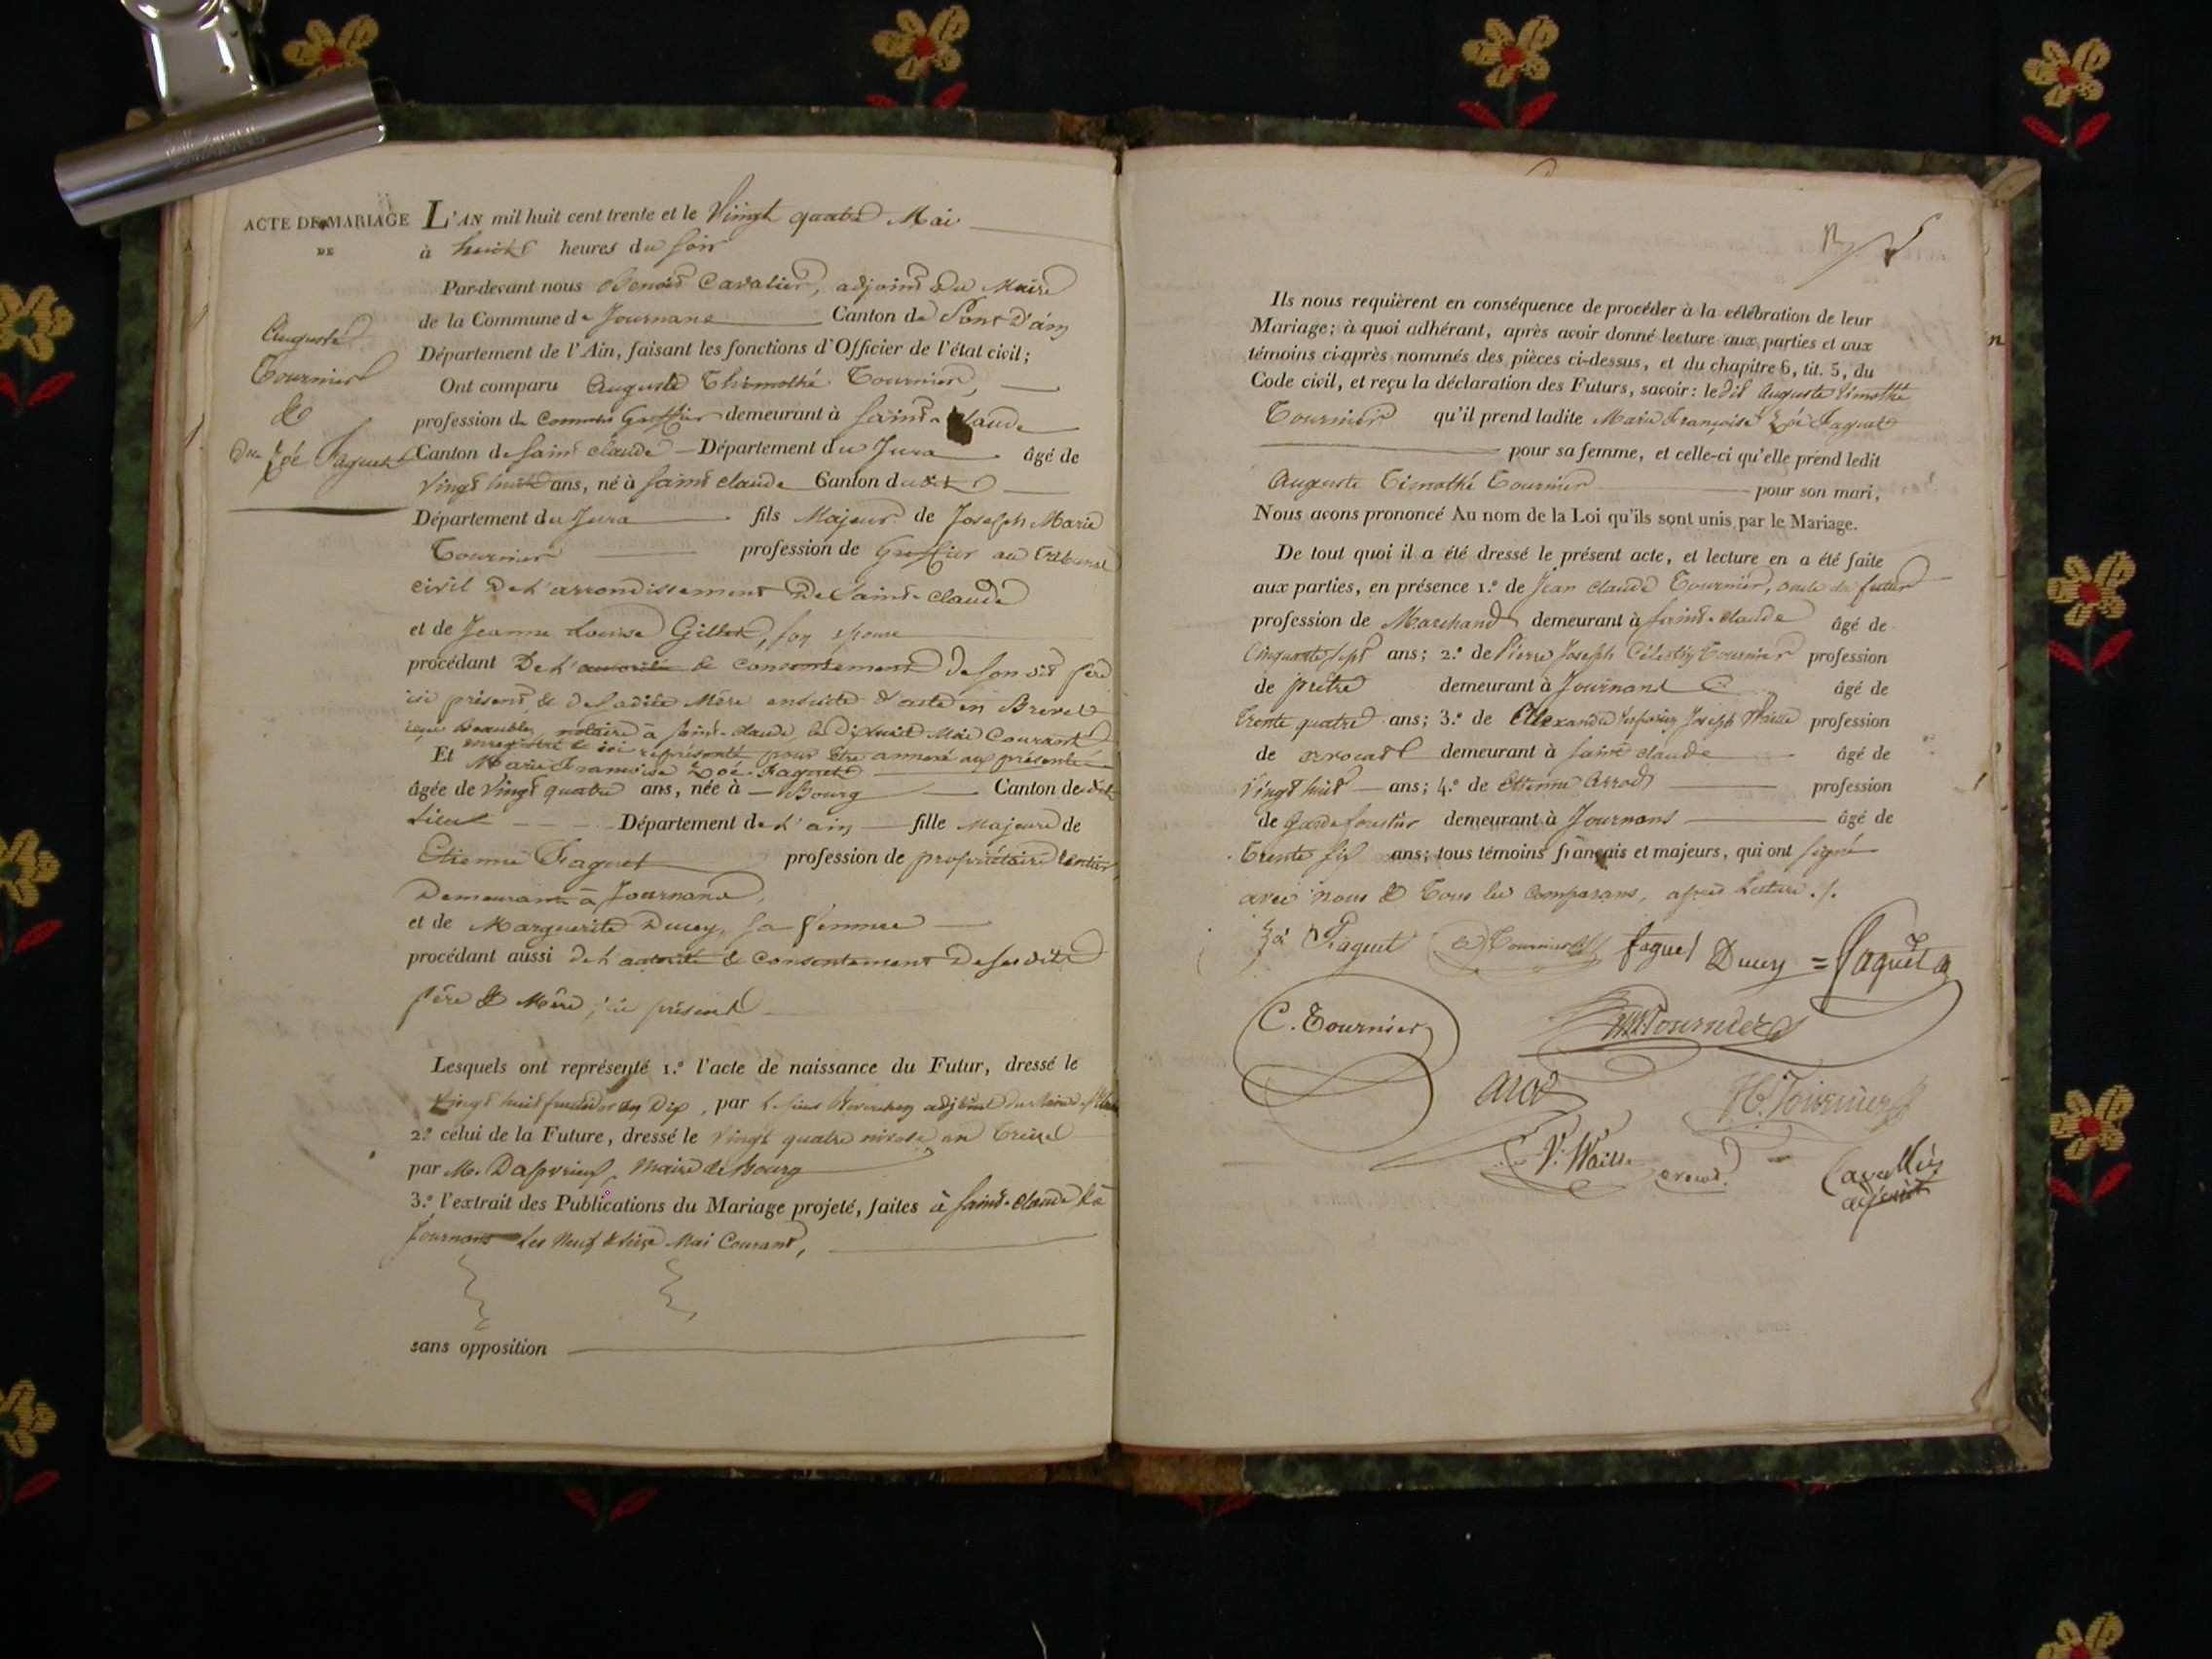 ACTE DE MARIAGE
DE
Auguste
Tournier
&
Dlle Zoé Faguet
L'AN mil huit cent trente et le Vingt quatre Mai
à huit heures du soir
Par-devant nous Benoit Cavalier, adjoint Du Maire
de la Commune de Journans Canton de Pont D'ain
Département de l'Ain, faisant les fonctions d'Officier de l'état civil;
Ont comparu Auguste Thimothé Tournier,
profession de Commis Greffier demeurant à Saint-Claude
Canton de Saint Claude Département du Jura âgé de
Vingt huit ans, né à Saint Claude Canton dudit
Département du Jura fils Majeur de Joseph Marie
Tournier profession de Greffier au Tribunal
civil De L'arrondissement De Saint-Claude
et de Jeanne Louise Gillet, son epouse
procédant De L'autorité & Consentement de Son dit père
ici présent, & de Sadite Mère ensuite d'acte en Brevet
reçu notaire à Saint-Claude le Dixhuit Mai Courant
enregistré & ici représenté pour être annexé aux présentes
Et Marie Françoise Zoé Faguet
âgée de Vingt quatre ans, née à Bourg Canton dudit
Lieu Département de L'ain fille Majeure de
Etienne Faguet profession de propriétaire rentier
Demeurant à Journans,
et de Marguerite Ducey, sa femme
procédant aussi de L'autorité & Consentement De Sesdits
père & Mère, ici présents
Lesquels ont représenté 1.º l'acte de naissance du Futur, dressé le
Vingt huit an Dix, par le Sieur adjoint du Maire de
2.º celui de la Future, dressé le Vingt quatre nivose, an Treize
par M. Maire de Bourg
3.º l'extrait des Publications du Mariage projeté, faites à Saint-Claude & à
Journans Les Neuf & Seize Mai Courant,
sans opposition
Ils nous requièrent en conséquence de procéder à la célébration de leur
Mariage; à quoi adhérant, après avoir donné lecture aux parties et aux
témoins ci-après nommés des pièces ci-dessus, et du chapitre 6, tit. 5, du
Code civil, et reçu la déclaration des Futurs, savoir: le dit Auguste Timothé
Tournier qu'il prend ladite Marie Françoise Zoé Faguet
pour sa femme, et celle-ci qu'elle prend ledit
Auguste Timothé Tournier pour son mari,
Nous avons prononcé Au nom de la Loi qu'ils sont unis par le Mariage.
De tout quoi il a été dressé le présent acte, et lecture en a été faite
aux parties, en présence 1.º de Jean Claude Tournier, oncle du futur
profession de Marchand demeurant à Saint-Claude âgé de
Cinquante Sept ans; 2.º de Pierre Joseph Célestin Tournier profession
de prêtre demeurant à Journans âgé de
Trente quatre ans; 3.º de Alexandre Joseph profession
de avocat demeurant à Saint Claude âgé de
Vingt huit ans; 4.º de Etienne profession
de garde forestier demeurant à Journans âgé de
Trente Six ans; tous témoins français et majeurs, qui ont signé
avec nous & Tous les Comparans, après Lecture ./.
Zoé Faguet Tournier fils Faguet Ducey = Faguet
C. Tournier Tournier
Tournier
V. Waille avocat
Cavallier
adjoint